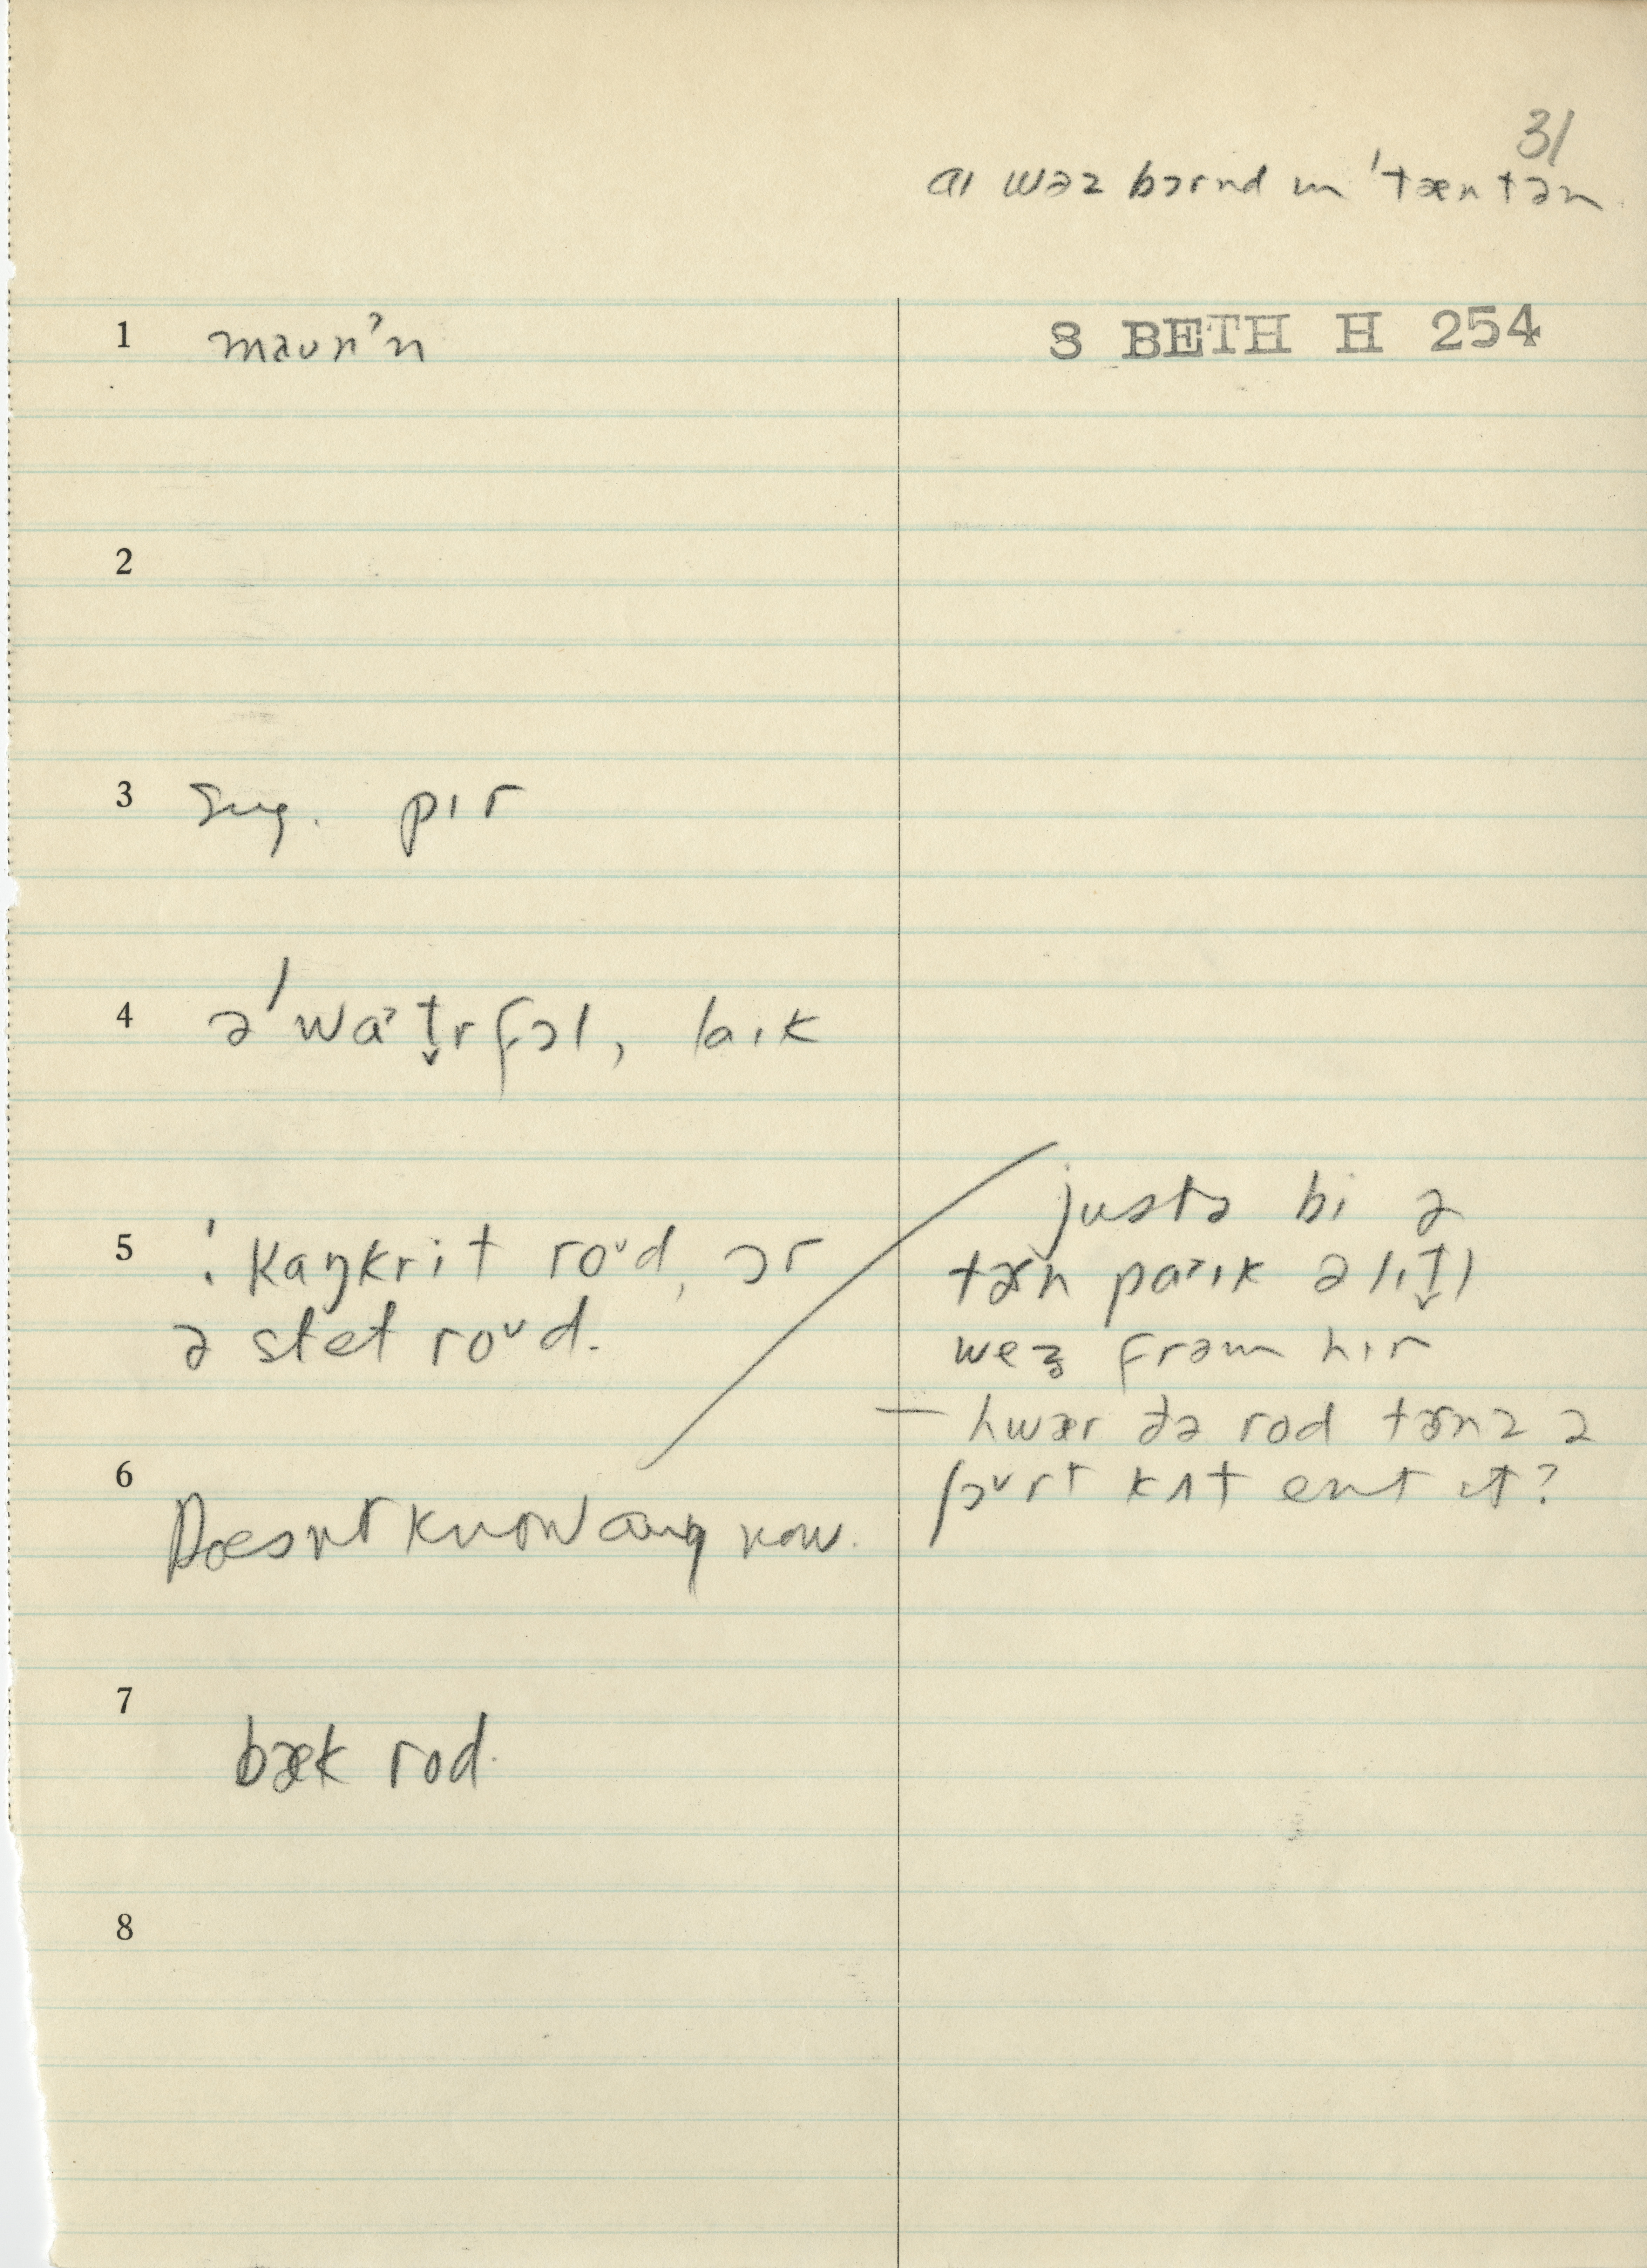 31
aɪ wəz bɔrnd ɪn 'tæntən
8 BETH H 254
1 maunˀn
2
3 sug. pɪr
4 ə 'waˀt̬rfɔl, laɪk
5 ⁝ kaŋkrit roᵛd, ɔr
ə stet roᵛd.
justə bi ə
tɚn paˀɪk ə lɪt̬l
wez̥ frəm hɪr
— hwær ðə rod tɚnz ə
ʃɔᵛrt kʌt ent ɪt?
6
Doesnt know any now.
7
bæk rod.
8